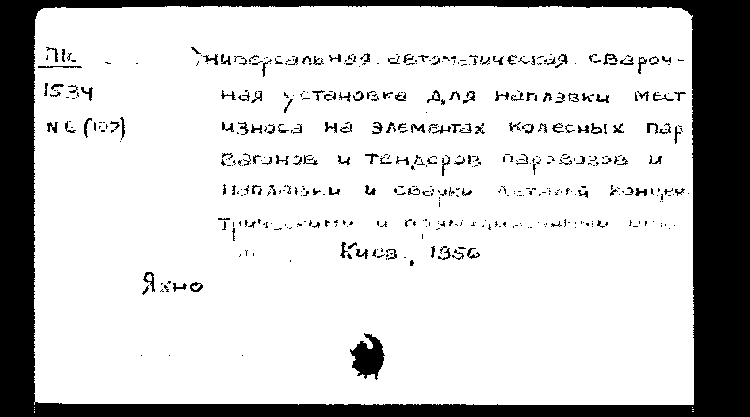 ПК Универсальная автоматическая свароч-
1534 ная установка для наплавки мест
N 6 (107) износа на элементах колесных пар
вагонов и тендеров паровозов и
наплавки и сварки деталей концен
трическими и прямолинейными
Киев, 1956
Яхно